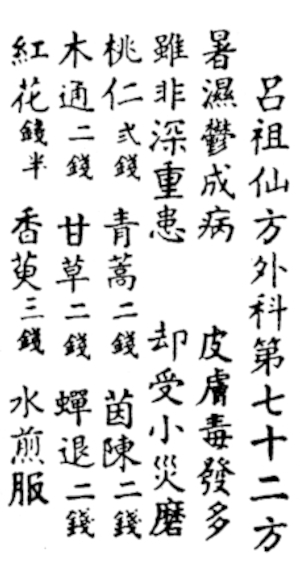 呂祖仙方外科第七十二方
暑濕鬱成病 皮膚毒發多
雖非深重患 却受小災磨
桃仁弍錢 青蒿二錢 茵陳二錢
木通二錢 甘草二錢 蟬退二錢
紅花錢半 香萸三錢 水煎服